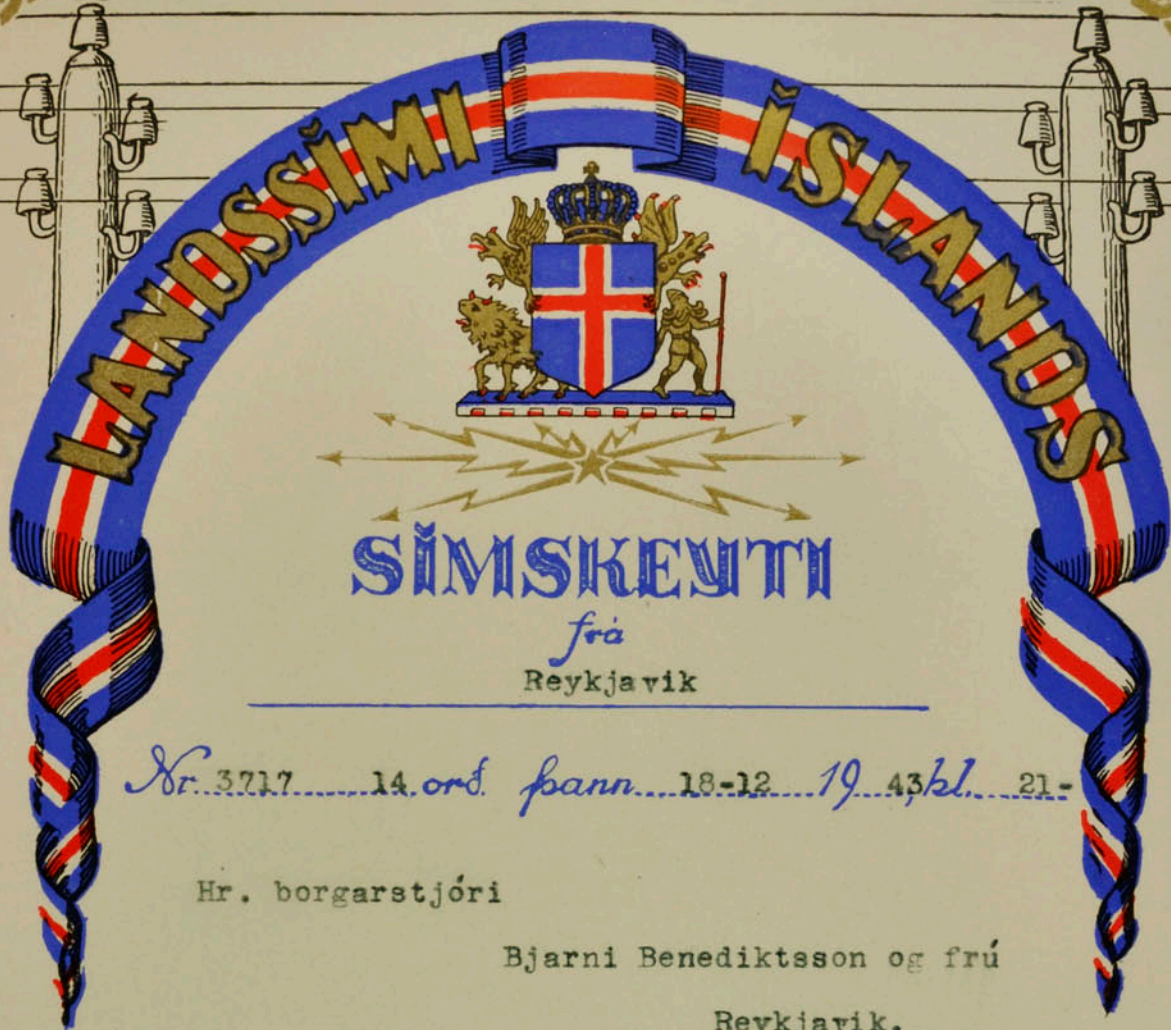 LANDSSÍMI ÍSLANDS
SÍMSKEYTI
frá
Reykjavik
Nr. 3717 14 orð. þann 18-12 19 43, kl. 21-
Hr. borgarstjóri
Bjarni Benediktsson og frú
Reykjavik.